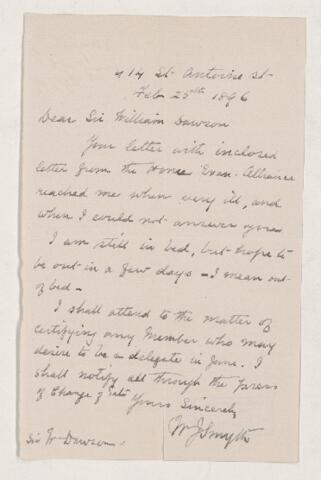 214 St. Antoine st-
Feb 25th 1896
Dear Sir William Dawson
Your letter with inclosed
letter from the Home Evan. Alliance
reached me when very ill, and
when I could not answer yours
I am still in bed, but hope to
be out in a few days - I mean out
of bed -
I shall attend to the matter of
certifying any Member who may
desire to be a delegate in June. I
shall notify all through the Press
of Change of date
Yours Sincerely
Wm J Smyth
Sir Wm Dawson